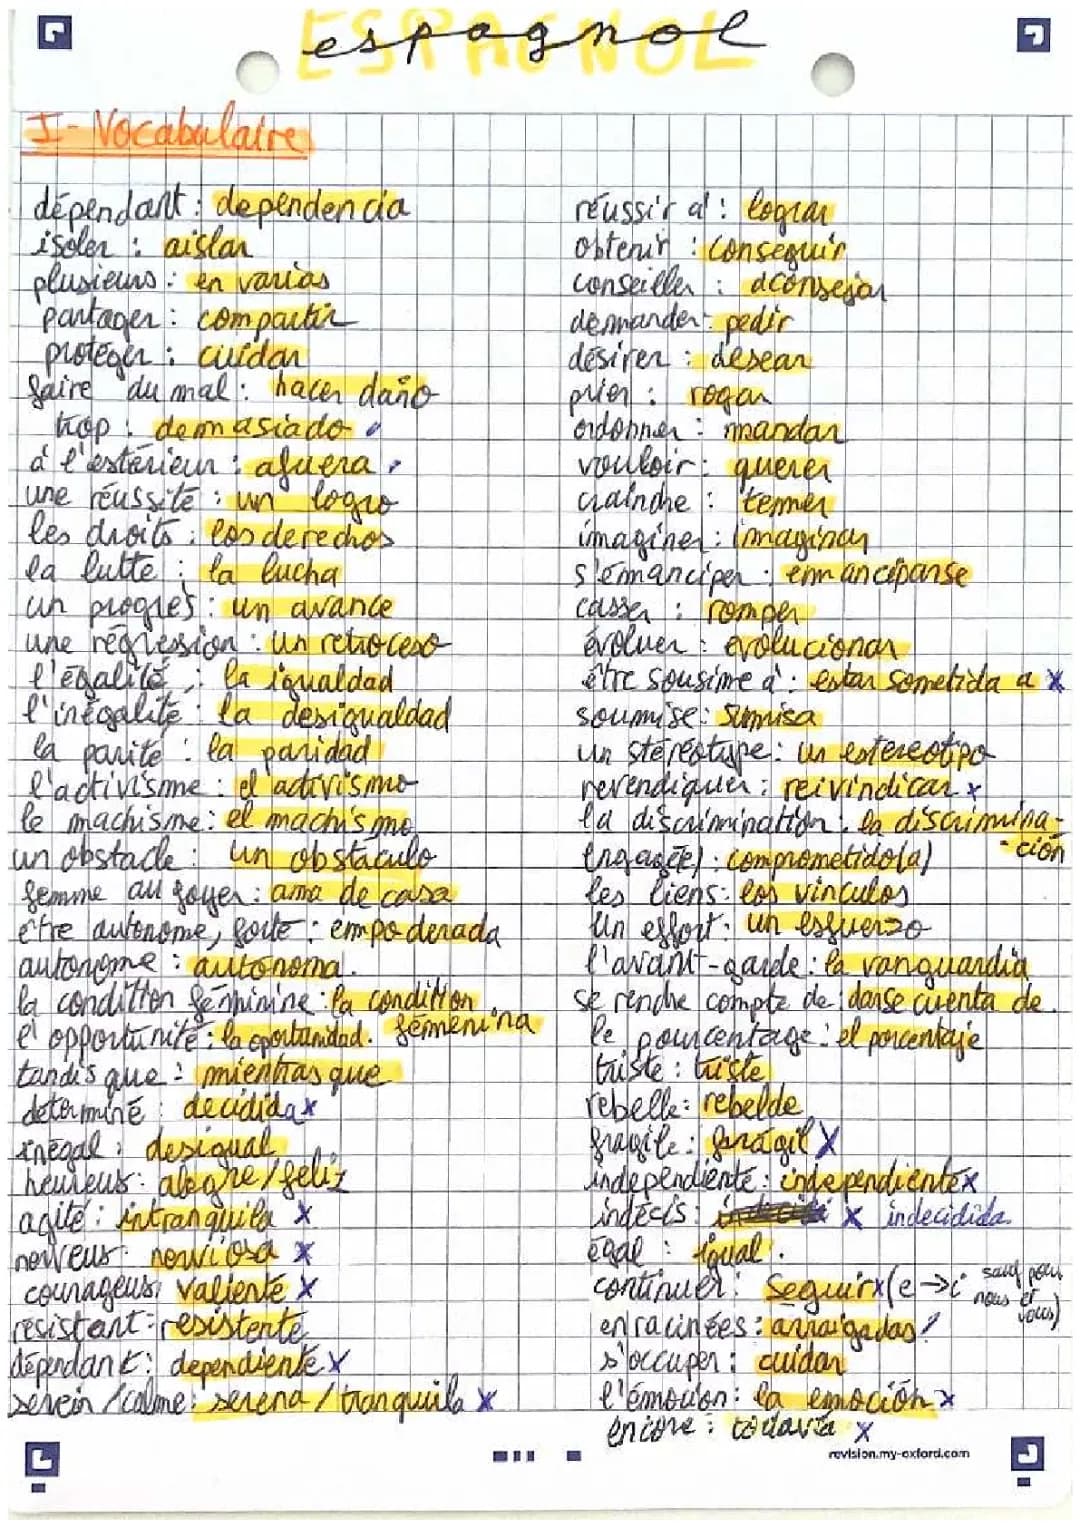 ESPAGNOL
espagnol
I - Vocabulaire
dépendant : dependencia
isoler : aislar
plusieurs : en varias
partager : compartir
protéger : cuidar
faire du mal : hacer daño
trop : demasiado
à l'estérieur : afuera
une réussite : un logro
les droits : los derechos
la lutte : la lucha
un progrès : un avance
une régression : un retroceso
l'égalité : la igualdad
l'inégalité : la desigualdad
la parité : la paridad
l'activisme : el activismo
le machisme : el machismo
un obstacle : un obstáculo
femme au foyer : ama de casa
être autonome, forte : empoderada
autonome : autónoma.
la condition féminine : la condition
femenina
l'opportunité : la oportunidad.
tandis que : mientras que
déterminé : decidida x
inégal : desigual
heureus : alegre / feliz
agité : intranquila x
nerveus : nerviosa x
courageus : valiente x
résistant : resistente
dépendant : dependiente x
serein / calme : serena / tranquila x
réussir à : lograr
obtenir : conseguir
conseiller : aconsejar
demander : pedir
désirer : desear
prier : rogar
ordonner : mandar
vouloir : querer
craindre : temer
imaginer : imaginar
s'émanciper : emanciparse
casser : romper
évoluer : evolucionar
être sousime à : estar sometida a x
soumise : sumisa
un stéréotype : un estereotipo
revendiquer : reivindicar x
la discrimination : la discrimina-
ción
engagé(e) : comprometido(a)
les liens : los vínculos
un effort : un esfuerzo
l'avant-garde : la vanguardia
se rendre compte de : darse cuenta de.
le pourcentage : el porcentaje
triste : triste
rebelle : rebelde
fragile : frágil x
indépendiente : independiente x
indécis : x indecidida
égal : igual.
continuer : seguir x (e → i sauf pour
nous et
vous)
enracinées : arraigadas !
s'occuper : cuidar
l'émotion : la emoción x
encore : todavía x
revision.my-oxford.com